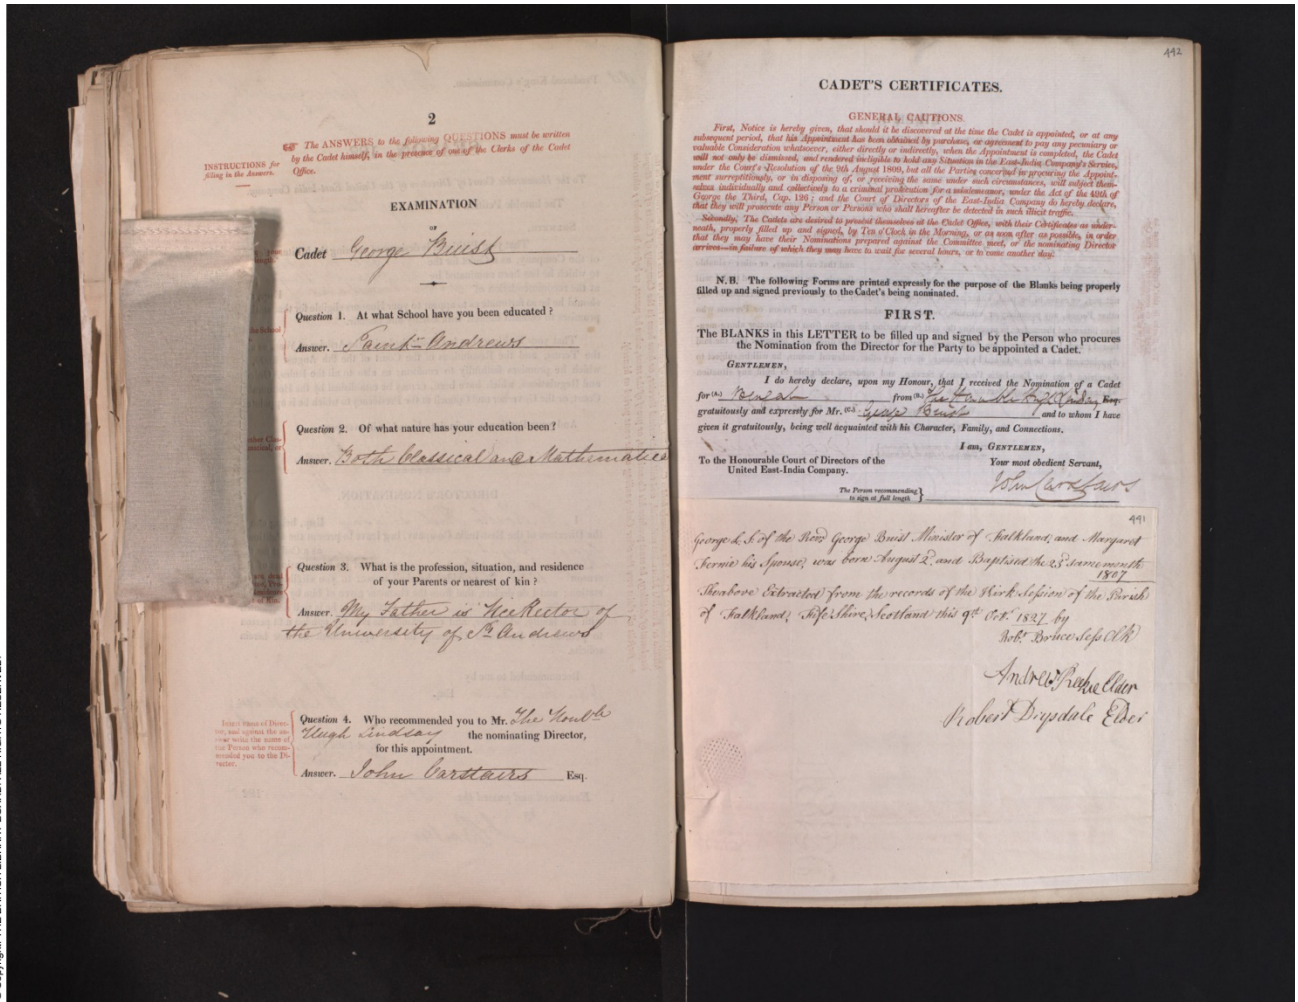 2
The ANSWERS to the following QUESTIONS must be written
by the Cadet himself, in the presence of one of the Clerks of the Cadet
Office.
INSTRUCTIONS for
filling in the Answers.
EXAMINATION
OF
Cadet George Buist
Question 1. At what School have you been educated?
Answer. Saint Andrews
Question 2. Of what nature has your education been?
Answer. Both Classical and Mathematical
Question 3. What is the profession, situation, and residence
of your Parents or nearest of kin?
Answer. My Father is Rector of
the University of St. Andrews
Question 4. Who recommended you to Mr. The Honble
Hugh Lindsay the nominating Director,
for this appointment.
Answer. John Carstairs Esq.
Insert name of Direc-
tor, and against the an-
swer write the name of
the Person who recom-
mended you to the Di-
rector.
442
CADET'S CERTIFICATES.
GENERAL CAUTIONS.
First, Notice is hereby given, that should it be discovered at the time the Cadet is appointed, or at any
subsequent period, that his Appointment has been obtained by purchase, or agreement to pay any pecuniary or
valuable Consideration whatsoever, either directly or indirectly, when the Appointment is completed, the Cadet
will not only be dismissed, and rendered ineligible to hold any Situation in the East-India Company's Service,
under the Court's Resolution of the 9th August 1809, but all the Parties concerned in procuring the Appoint-
ment surreptitiously, or in disposing of, or receiving the same under such circumstances, will subject them-
selves individually and collectively to a criminal prosecution for a misdemeanor, under the Act of the 49th of
George the Third, Cap. 126; and the Court of Directors of the East-India Company do hereby declare,
that they will prosecute any Person or Persons who shall hereafter be detected in such illicit traffic.
Secondly, The Cadets are desired to present themselves at the Cadet Office, with their Certificates as under-
neath, properly filled up and signed, by Ten o'Clock in the Morning, or as soon after as possible, in order
that they may have their Nominations prepared against the Committee meet, or the nominating Director
arrives—in failure of which they may have to wait for several hours, or to come another day.
N.B. The following Forms are printed expressly for the purpose of the Blanks being properly
filled up and signed previously to the Cadet's being nominated.
FIRST.
The BLANKS in this LETTER to be filled up and signed by the Person who procures
the Nomination from the Director for the Party to be appointed a Cadet.
GENTLEMEN,
I do hereby declare, upon my Honour, that I received the Nomination of a Cadet
for (A.) Bengal from (B.) The Honble Hugh Lindsay Esq.
gratuitously and expressly for Mr. (C.) George Buist and to whom I have
given it gratuitously, being well acquainted with his Character, Family, and Connections.
I am, GENTLEMEN,
To the Honourable Court of Directors of the
United East-India Company.
Your most obedient Servant,
The Person recommending
to sign at full length
John Carstairs
441
George L. S. of the Revd George Buist Minister of Falkland, and Margaret
Fernie his Spouse, was born August 2d. and Baptised the 23d same month
1807
The above Extracted from the records of the Kirk Session of the Parish
of Falkland, Fife Shire, Scotland this 9th Octr. 1827 by
Robt. Bruce Sess Clk
Andrew Reekie Elder
Robert Drysdale Elder